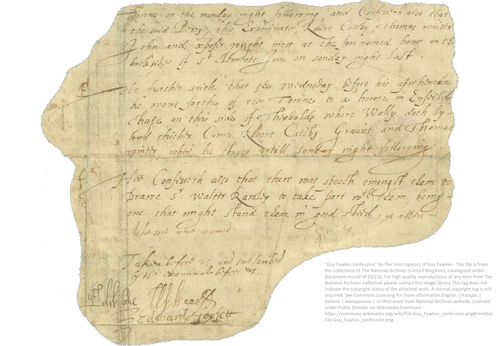 the monday night following and Confesseth also that
the said Percy, this Examinate, Robert Catesby, Thomas winter
John and xpofer wright mett at the fornamed house on the
backside of St Clements Inn on sunday night last
he further saith that the wednesday before his apprehension
he went forthe of the Towne to a house in Enfeild
Chase on this side of Theobalds where Wally doth ly
and thither Came Robert Catesby Graunt and Thomas
winter where he stayed untill sonday night following
He Confesseth also that there was speech emongst them to
Drawe Sr Walter Rawley to take part wth them being
one that might stand them in good steed
Taken before us and subscribed
by the examinate before us
Edward Forsett
"Guy Fawkes confession" by The interrogators of Guy Fawkes - This file is from
the collections of The National Archives (United Kingdom), catalogued under
document record SP14/216. For high quality reproductions of any item from The
National Archives collection please contact the image library This tag does not
indicate the copyright status of the attached work. A normal copyright tag is still
required. See Commons:Licensing for more information English | français |
italiano | македонски | +/-Retrieved from National Archives website. Licensed
under Public Domain via Wikimedia Commons -
https://commons.wikimedia.org/wiki/File:Guy_Fawkes_confession.png#/media/
File:Guy_Fawkes_confession.png